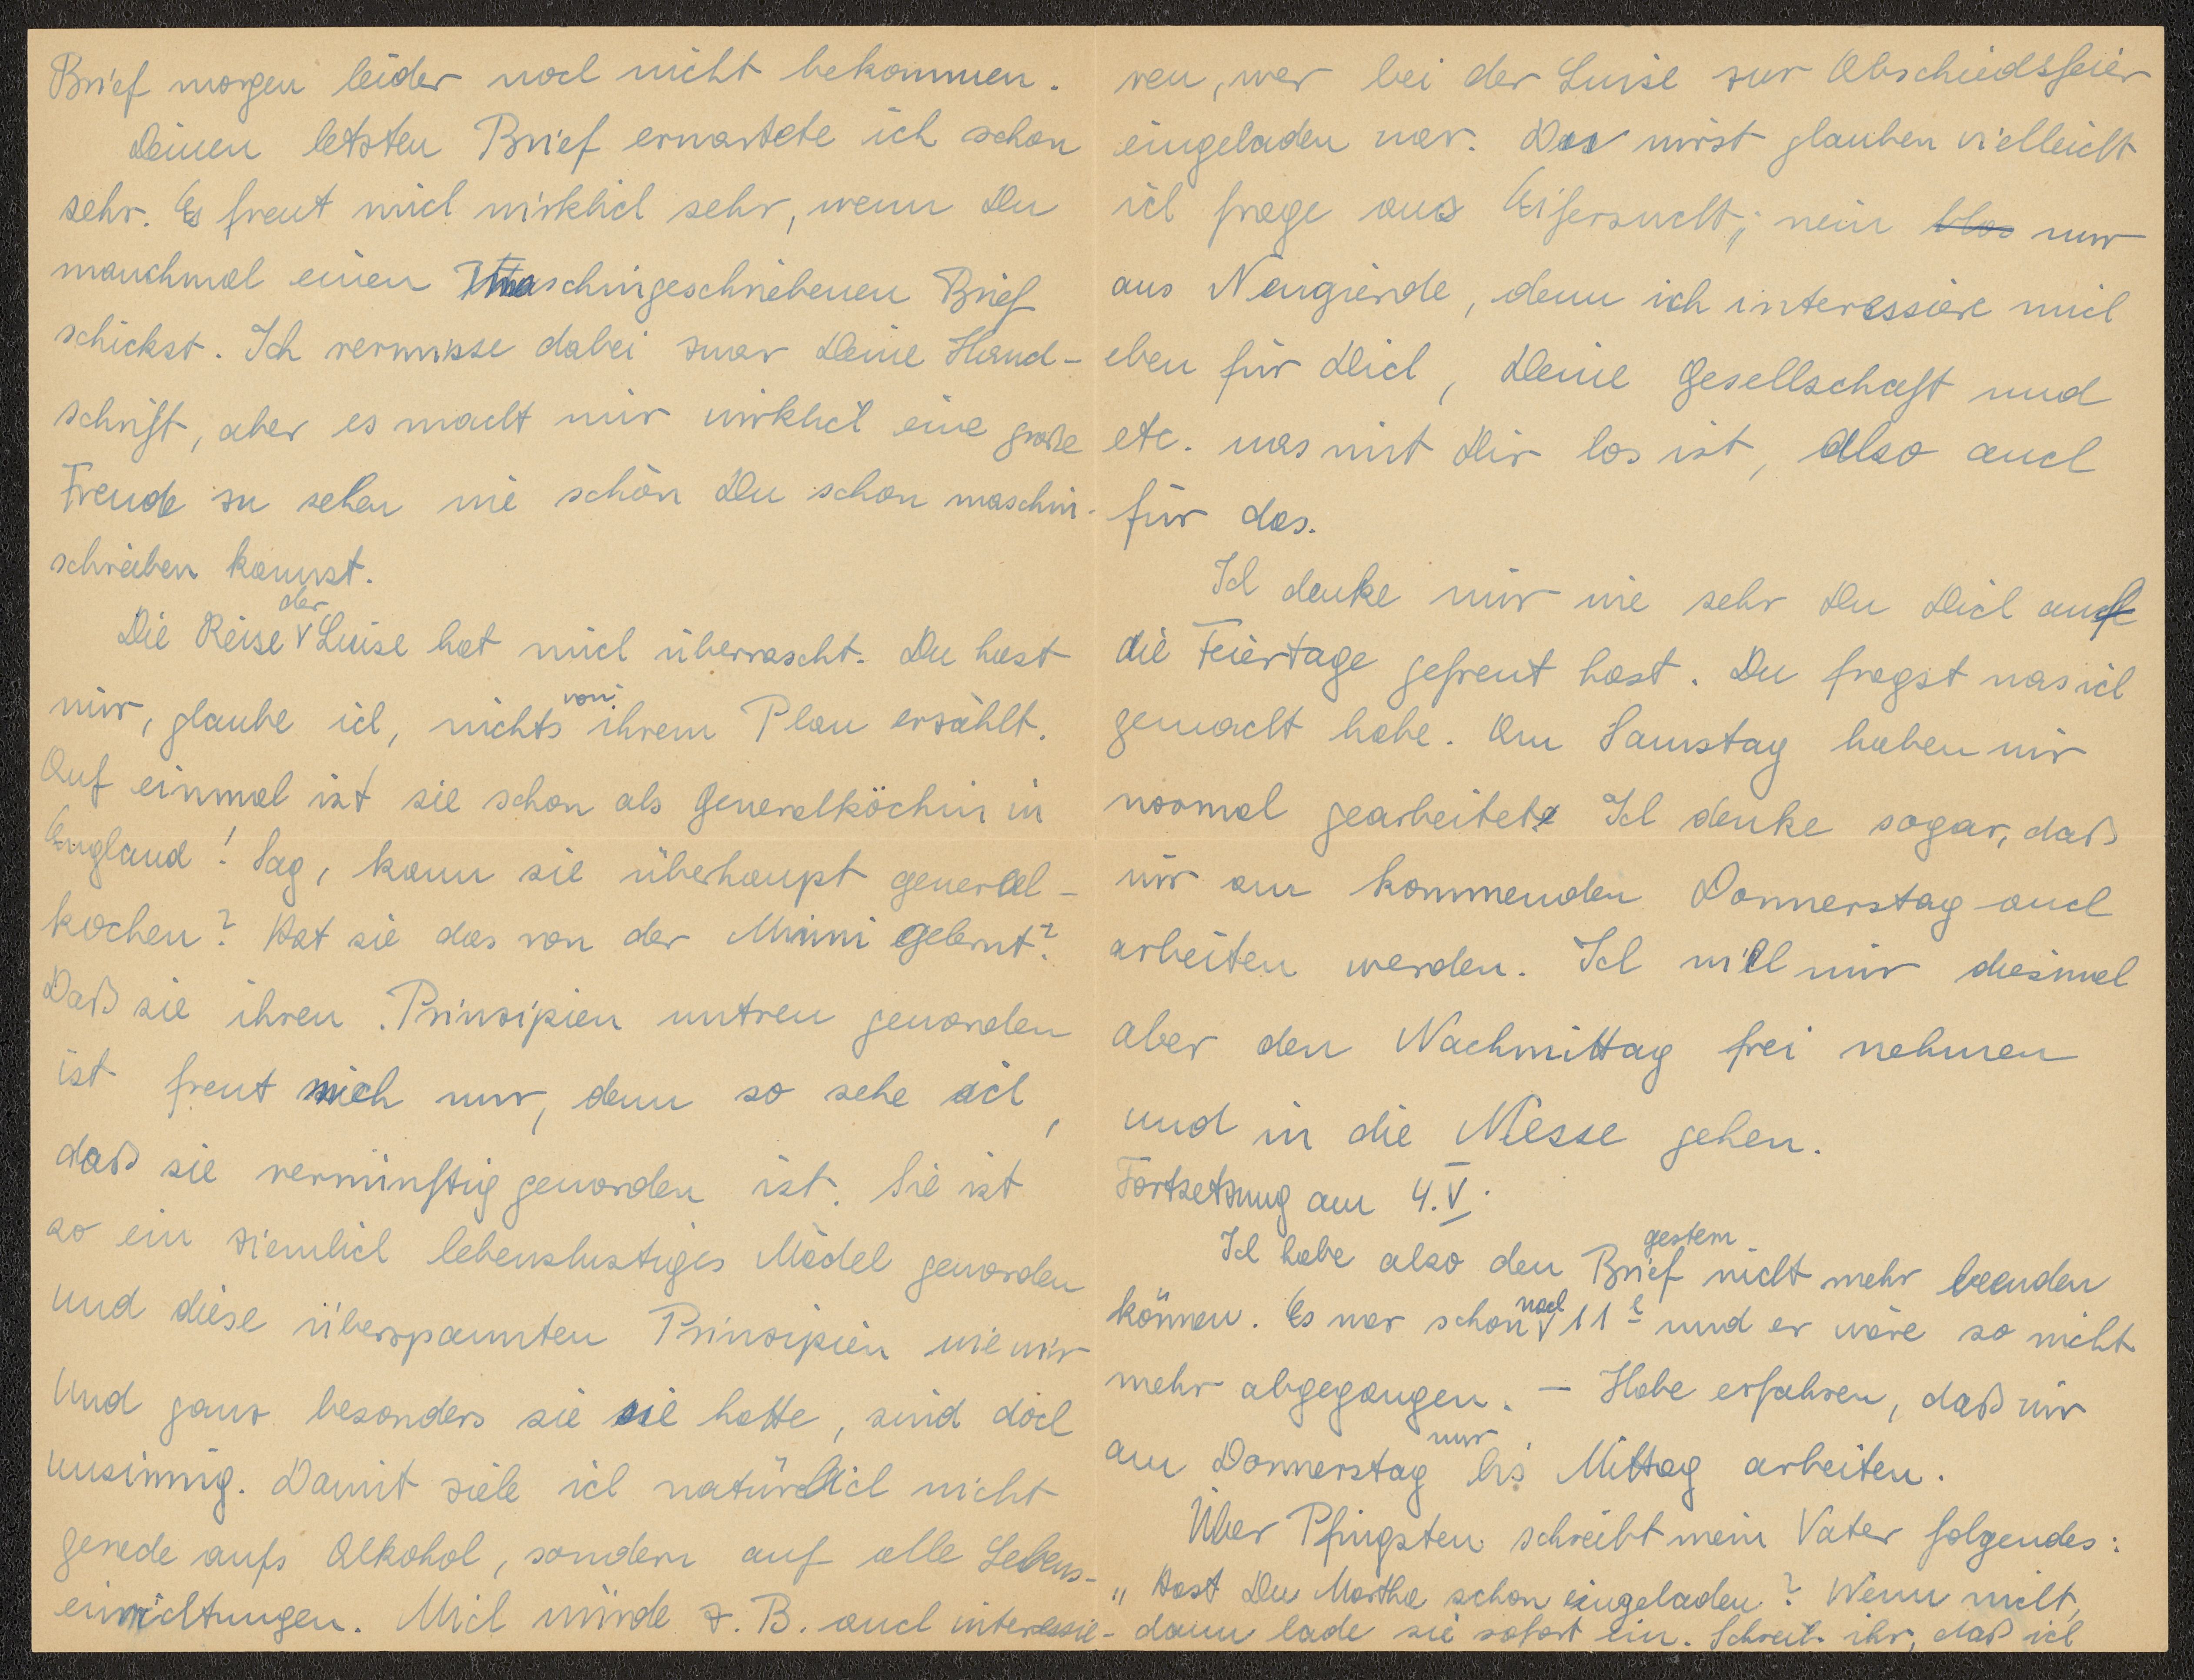 Brief morgen leider noch nicht bekommen.
Deinen letzten Brief erwartete ich schon
sehr. Es freut mich wirklich sehr, wenn Du
manchmal einen Maschingeschriebenen Brief
schickst. Ich vermisse dabei zwar Deine Hand-
schrift, aber es macht mir wirklich eine große
Freude zu sehen wie schön Du schon maschin-
schreiben kannst.
Die Reise der Luise hat mich überrascht. Du hast
mir, glaube ich, nichts von ihrem Plan erzählt.
Auf einmal ist sie schon als Generalköchin in
England! Sag, kann sie überhaupt general-
kochen? Hat sie das von der Mimi gelernt?
Daß sie ihren Prinzipien untreu geworden
ist freut mich nur, denn so sehe ich,
daß sie vernünftig geworden ist. Sie ist
so ein ziemlich lebenslustiges Mädel geworden
und diese überspannten Prinzipien wie wir
und ganz besonders sie sie hatte, sind doch
unsinnig. Damit ziele ich natürlich nicht
gerade aufs Alkohol, sondern auf alle Lebens-
einrichtungen. Mich würde z. B. auch interessie-
ren, wer bei der Luise zur Abschiedsfeier
eingeladen war. Du wirst glauben vielleicht
ich frage aus Eifersucht; nein blos nur
aus Neugierde, denn ich interessiere mich
eben für Dich, Deine Gesellschaft und
etc. was mit Dir los ist, also auch
für das.
Ich denke mir wie sehr Du Dich auf
die Feiertage gefreut hast. Du fragst was ich
gemacht habe. Am Samstag haben wir
normal gearbeitet. Ich denke sogar, daß
wir am kommenden Donnerstag auch
arbeiten werden. Ich will mir diesmal
aber den Nachmittag frei nehmen
und in die Messe gehen.
Fortsetzung am 4.V.
Ich habe also den Brief gestern nicht mehr beenden
können. Es war schon nach 11 h und er wäre so nicht
mehr abgegangen. – Habe erfahren, daß wir
am Donnerstag nur bis Mittag arbeiten.
Über Pfingsten schreibt mein Vater folgendes:
„Hast Du Martha schon eingeladen? Wenn nicht,
dann lade sie sofort ein. Schreib ihr, daß ich